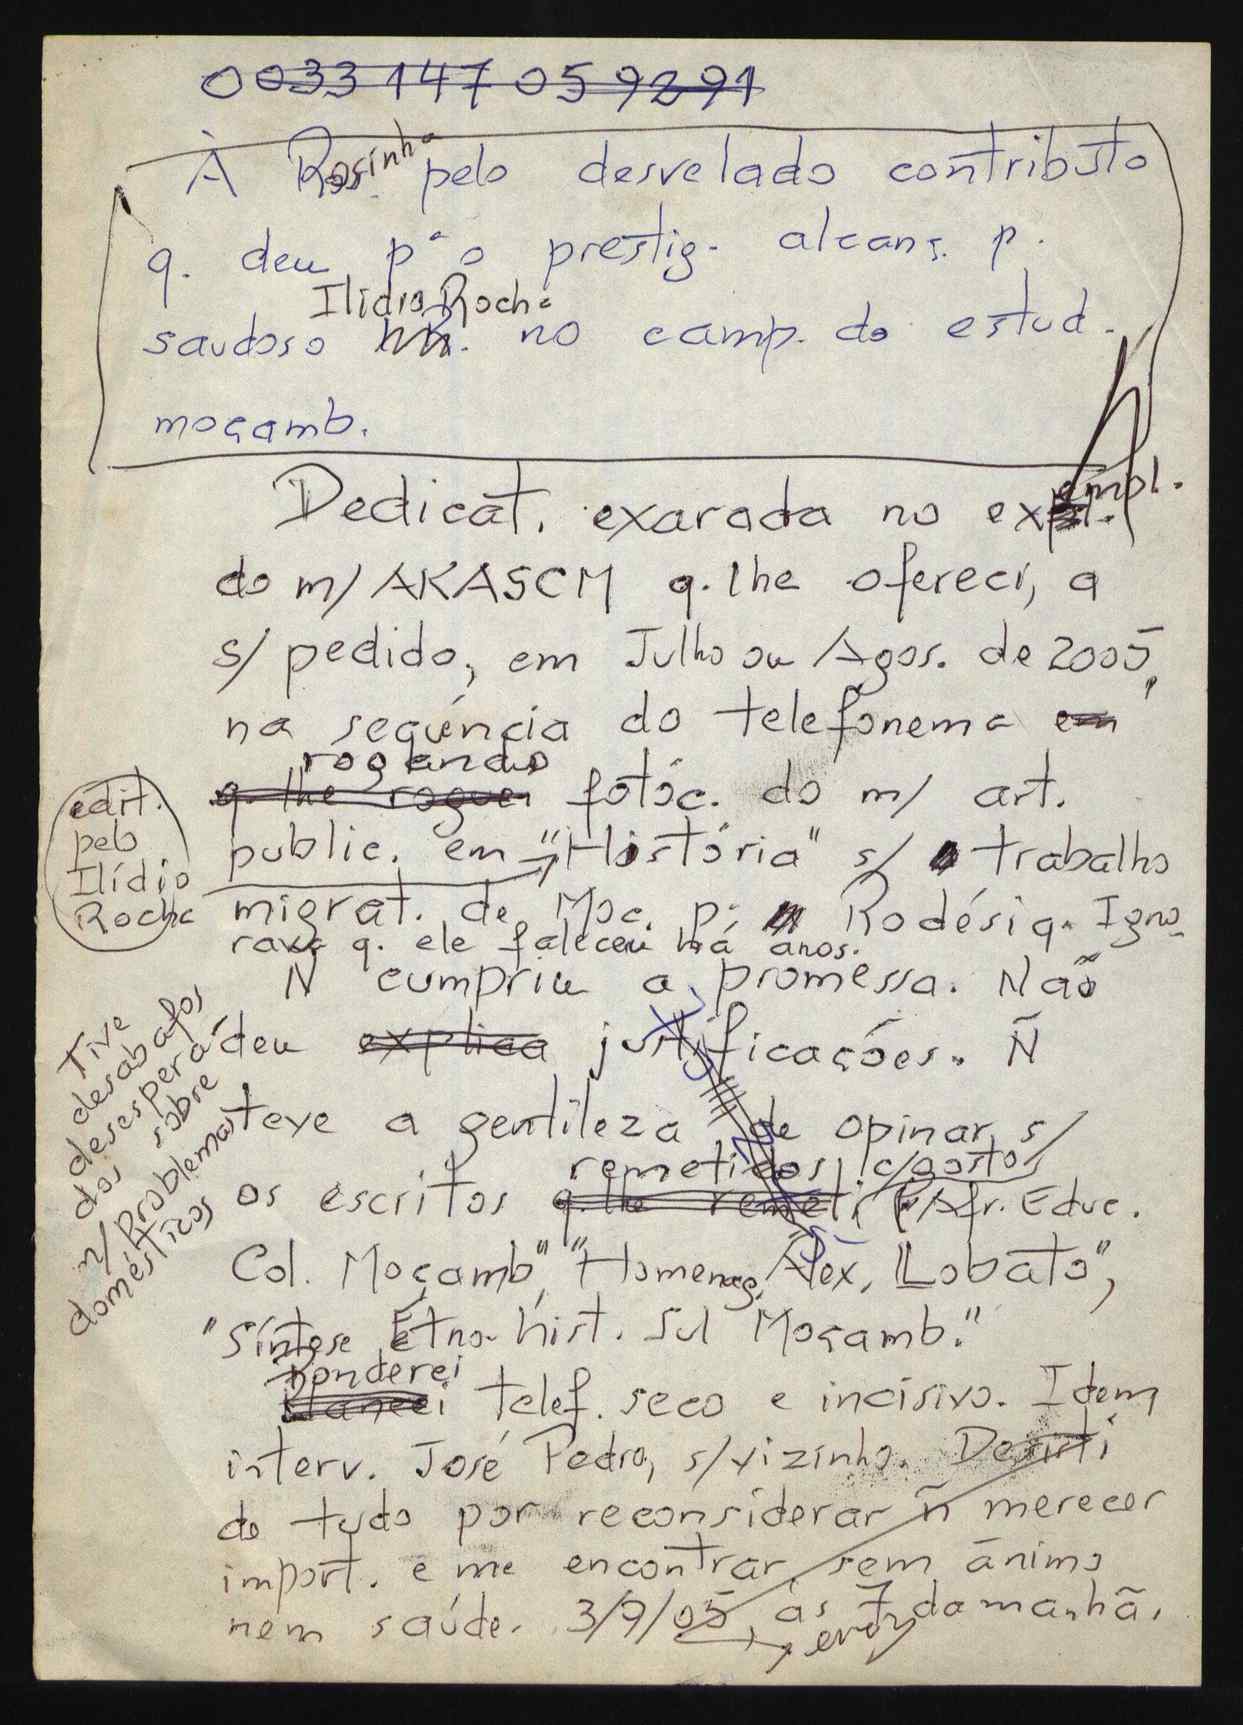 0033 147 059291
À Rosinha pelo desvelado contributo
q. deu pª o prestig. alcanç. p.
Ilídio Rocha
saudoso no camp. do estud.
moçamb.
Dedicat. exarada no exempl.
do m/ AKASCM q. lhe ofereci, a
s/ pedido, em Julho ou Agos. de 2005,
na sequência do telefonema em
rogando
q. lhe roguei fotóc. do m/ art.
public. em "História" s/ o trabalho
migrat. de Moç. pª Rodésia. Igno-
rava q. ele faleceu há anos.
edit.
pelo
Ilídio
Rocha
Ñ cumpriu a promessa. Não
deu explica justificações. Ñ
teve a gentileza de opinar s/
remetidos c/gostos
os escritos q. lhe remeti "Afr. Educ.
Col. Moçamb", "Homenag. Álex. Lobato",
"Síntese Étno-hist. Sul Moçamb."
Tive
desabafos
desespera-
dos sobre
m/ problemas
domésticos
Ponderei
telef. seco e incisivo. Idem
interv. José Pedro, s/vizinho. Desisti
de tudo por reconsiderar ñ merecer
import. e me encontrar sem ânimo
nem saúde. 3/9/05 às 7 da manhã.